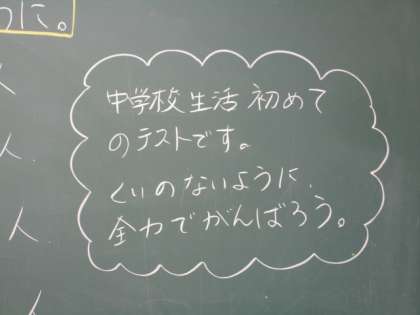 うに。
人
人
人
人
中学校生活 初めて
のテストです。
くいのないように、
全力でがんばろう。